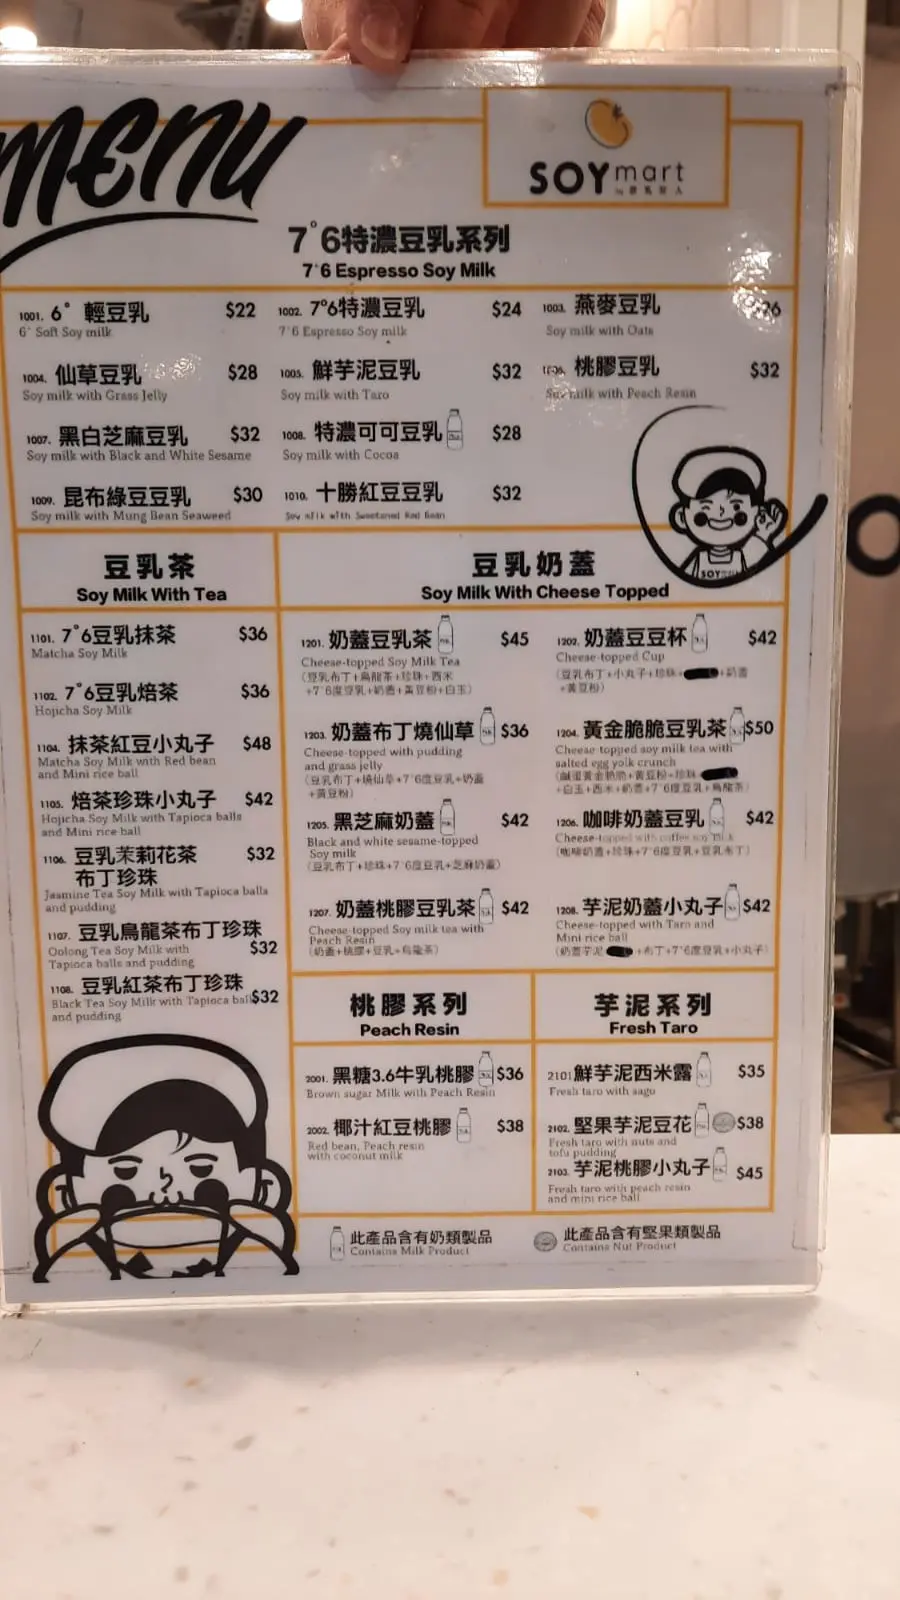 MENU
SOYmart
7°6特濃豆乳系列
7°6 Espresso Soy Milk
1001. 6° 輕豆乳 $22
6° Soft Soy milk
1002. 7°6特濃豆乳 $24
7°6 Espresso Soy milk
1003. 燕麥豆乳
Soy milk with Oats
1004. 仙草豆乳 $28
Soy milk with Grass Jelly
1005. 鮮芋泥豆乳 $32
Soy milk with Taro
桃膠豆乳 $32
Soy milk with Peach Resin
1007. 黑白芝麻豆乳 $32
Soy milk with Black and White Sesame
1008. 特濃可可豆乳 $28
Soy milk with Cocoa
1009. 昆布綠豆豆乳 $30
Soy milk with Mung Bean Seaweed
1010. 十勝紅豆豆乳 $32
Soy milk with Sweetened Red Bean
SOY
豆乳茶
Soy Milk With Tea
1101. 7°6豆乳抹茶 $36
Matcha Soy Milk
1102. 7°6豆乳焙茶 $36
Hojicha Soy Milk
1104. 抹茶紅豆小丸子 $48
Matcha Soy Milk with Red bean
and Mini rice ball
1105. 焙茶珍珠小丸子 $42
Hojicha Soy Milk with Tapioca balls
and Mini rice ball
1106. 豆乳茉莉花茶 $32
布丁珍珠
Jasmine Tea Soy Milk with Tapioca balls
and pudding
1107. 豆乳烏龍茶布丁珍珠
Oolong Tea Soy Milk with $32
Tapioca balls and pudding
1108. 豆乳紅茶布丁珍珠
Black Tea Soy Milk with Tapioca ball $32
and pudding
豆乳奶蓋
Soy Milk With Cheese Topped
1201. 奶蓋豆乳茶 $45
Cheese-topped Soy Milk Tea
(豆乳布丁+烏龍茶+珍珠+西米
+7°6度豆乳+奶蓋+黃豆粉+白玉)
1202. 奶蓋豆豆杯 $42
Cheese-topped Cup
(豆乳布丁+小丸子+珍珠+ +奶蓋
+黃豆粉)
1203. 奶蓋布丁燒仙草 $36
Cheese-topped with pudding
and grass jelly
(豆乳布丁+燒仙草+7°6度豆乳+奶蓋
+黃豆粉)
1204. 黃金脆脆豆乳茶 $50
Cheese topped soy milk tea with
salted egg yolk crunch
(鹹蛋黃金脆脆+黃豆粉+珍珠
+白玉+西米+奶蓋+7°6度豆乳+烏龍茶)
1205. 黑芝麻奶蓋 $42
Black and white sesame-topped
Soy milk
(豆乳布丁+珍珠+7°6度豆乳+芝麻奶蓋)
1206. 咖啡奶蓋豆乳 $42
Cheese-topped with coffee soy milk
(咖啡奶蓋+珍珠+7°6度豆乳+豆乳布丁)
1207. 奶蓋桃膠豆乳茶 $42
Cheese-topped Soy milk tea with
Peach Resin
(奶蓋+桃膠+豆乳+烏龍茶)
1208. 芋泥奶蓋小丸子 $42
Cheese-topped with Taro and
Mini rice ball
(奶蓋芋泥 +布丁+7°6度豆乳+小丸子)
桃膠系列
Peach Resin
2001. 黑糖3.6牛乳桃膠 $36
Brown sugar Milk with Peach Resin
2002. 椰汁紅豆桃膠 $38
Red bean, Peach resin
with coconut milk
芋泥系列
Fresh Taro
2101 鮮芋泥西米露 $35
Fresh taro with sago
2102. 堅果芋泥豆花 $38
Fresh taro with nuts and
tofu pudding
2103. 芋泥桃膠小丸子 $45
Fresh taro with peach resin
and mini rice ball
此產品含有奶類製品
Contains Milk Product
此產品含有堅果類製品
Contains Nut Product